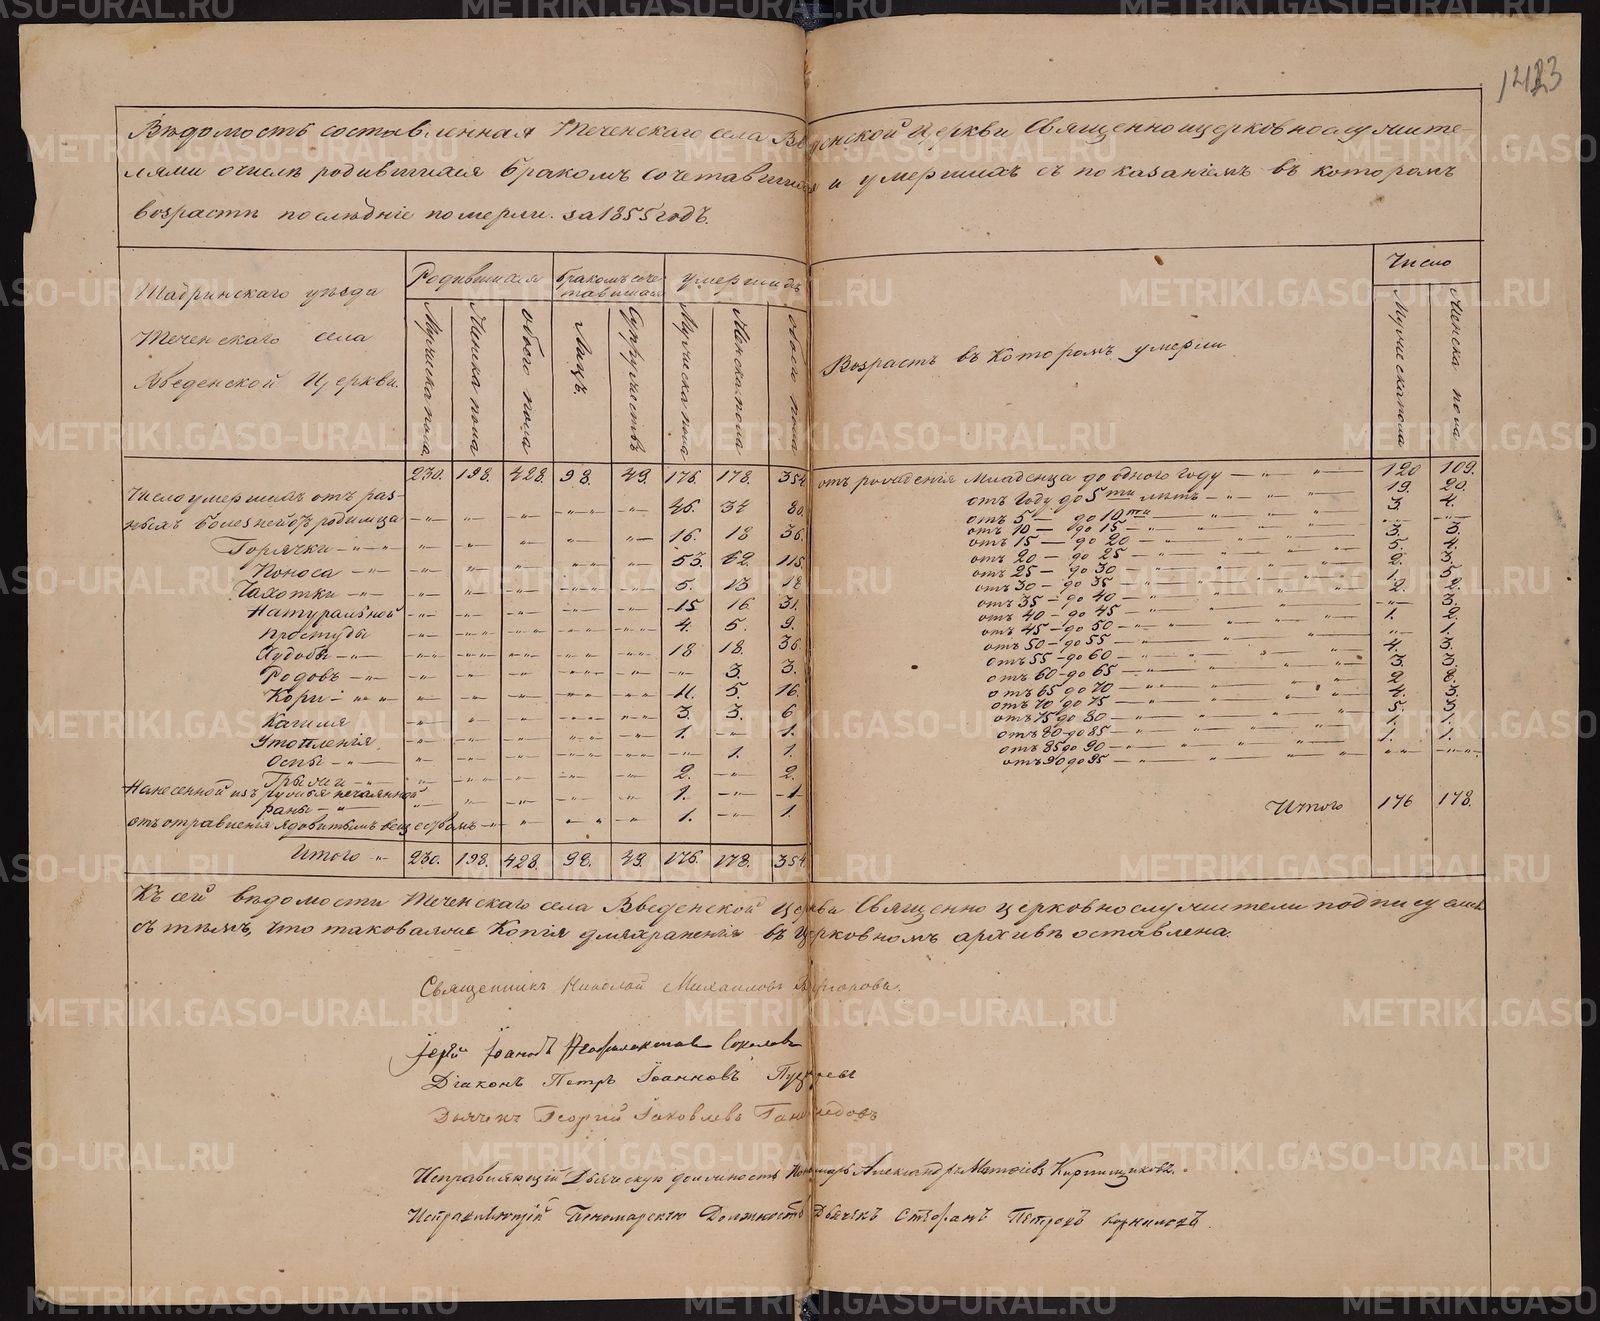 1423
Вѣдомость составленная Теченскаго села Введенской Церкви Священноицерковнослужите-
лями очислѣ родившихся бракомъ сочетавшихся и умершихъ съ показаніемъ въ которомъ
возрастѣ послѣдніе померли. за 1855 годъ.
Шадринскаго уѣзда
Теченскаго села
Введенской Церкви.
Родившихся
бракомъ соче-
тавшихся
умершихъ
Мужеска пола
Женска пола
обоего пола
Лицъ.
Супружествъ
Мужеска пола
Женска пола
обоего пола
Возрастъ въ которомъ умерли
Число
Мужеска пола
Женска пола
230. 198. 428. 98. 49. 176. 178. 354
Число умершихъ отъ раз-
ныхъ болезней отъ родимца 46. 34 80.
Горячки 16. 18 36.
Поноса 53. 62. 115
Чахотки 5. 13 18
Натуральной 15 16. 31.
Простуды 4. 5. 9.
Худобы 18 18. 36.
Родовъ 3. 3.
Кори 11. 5. 16.
Кашля 3. 3. 6
Утопленія 1. 1.
Оспы 1. 1.
Грыжи 2. 2.
Нанесенной изъ ружья нечаянной
раны 1. 1
отъ отравленія ядовитымъ веществомъ 1. 1.
Итого 230. 198. 428. 98. 49. 176. 178. 354
отъ рожденія Младенца до одного году 120 109.
отъ Году до 5ти лѣтъ 19. 20.
отъ 5 до 10ти 3. 4.
отъ 10 до 15
отъ 15 до 20 3. 3.
отъ 20 до 25 5. 4.
отъ 25 до 30 2. 3.
отъ 30 до 35 1. 5.
отъ 35 до 40 2. 2.
отъ 40 до 45 3.
отъ 45 до 50 1. 2.
отъ 50 до 55 1.
отъ 55 до 60 4. 3.
отъ 60 до 65 3. 3.
отъ 65 до 70 2 8.
отъ 70 до 75 4. 3.
отъ 75 до 80 5. 3
отъ 80 до 85 1. 1.
отъ 85 до 90 1. 1.
отъ 90 до 95
Итого 176 178.
Къ сей вѣдомости Теченскаго села Введенской Церкви Священно церковнослужители подписуемся
съ тѣмъ, что таковая же Копія для храненія въ Церковномъ архивѣ оставлена.
Священникъ Николай Михаиловъ
Іерей Іоаннъ Ѳеофилактовъ Соколовъ
Діаконъ Петръ Іоанновъ
Дьячекъ Георгій Іаковлевъ
Исправляющій Дьяческую должность Пономарь Александръ Матѳіевъ Кирпищиковъ.
Исправляющій Пономарскую Должность Дьячекъ Стефанъ Петровъ Корниловъ.
METRIKI.GASO-URAL.RU